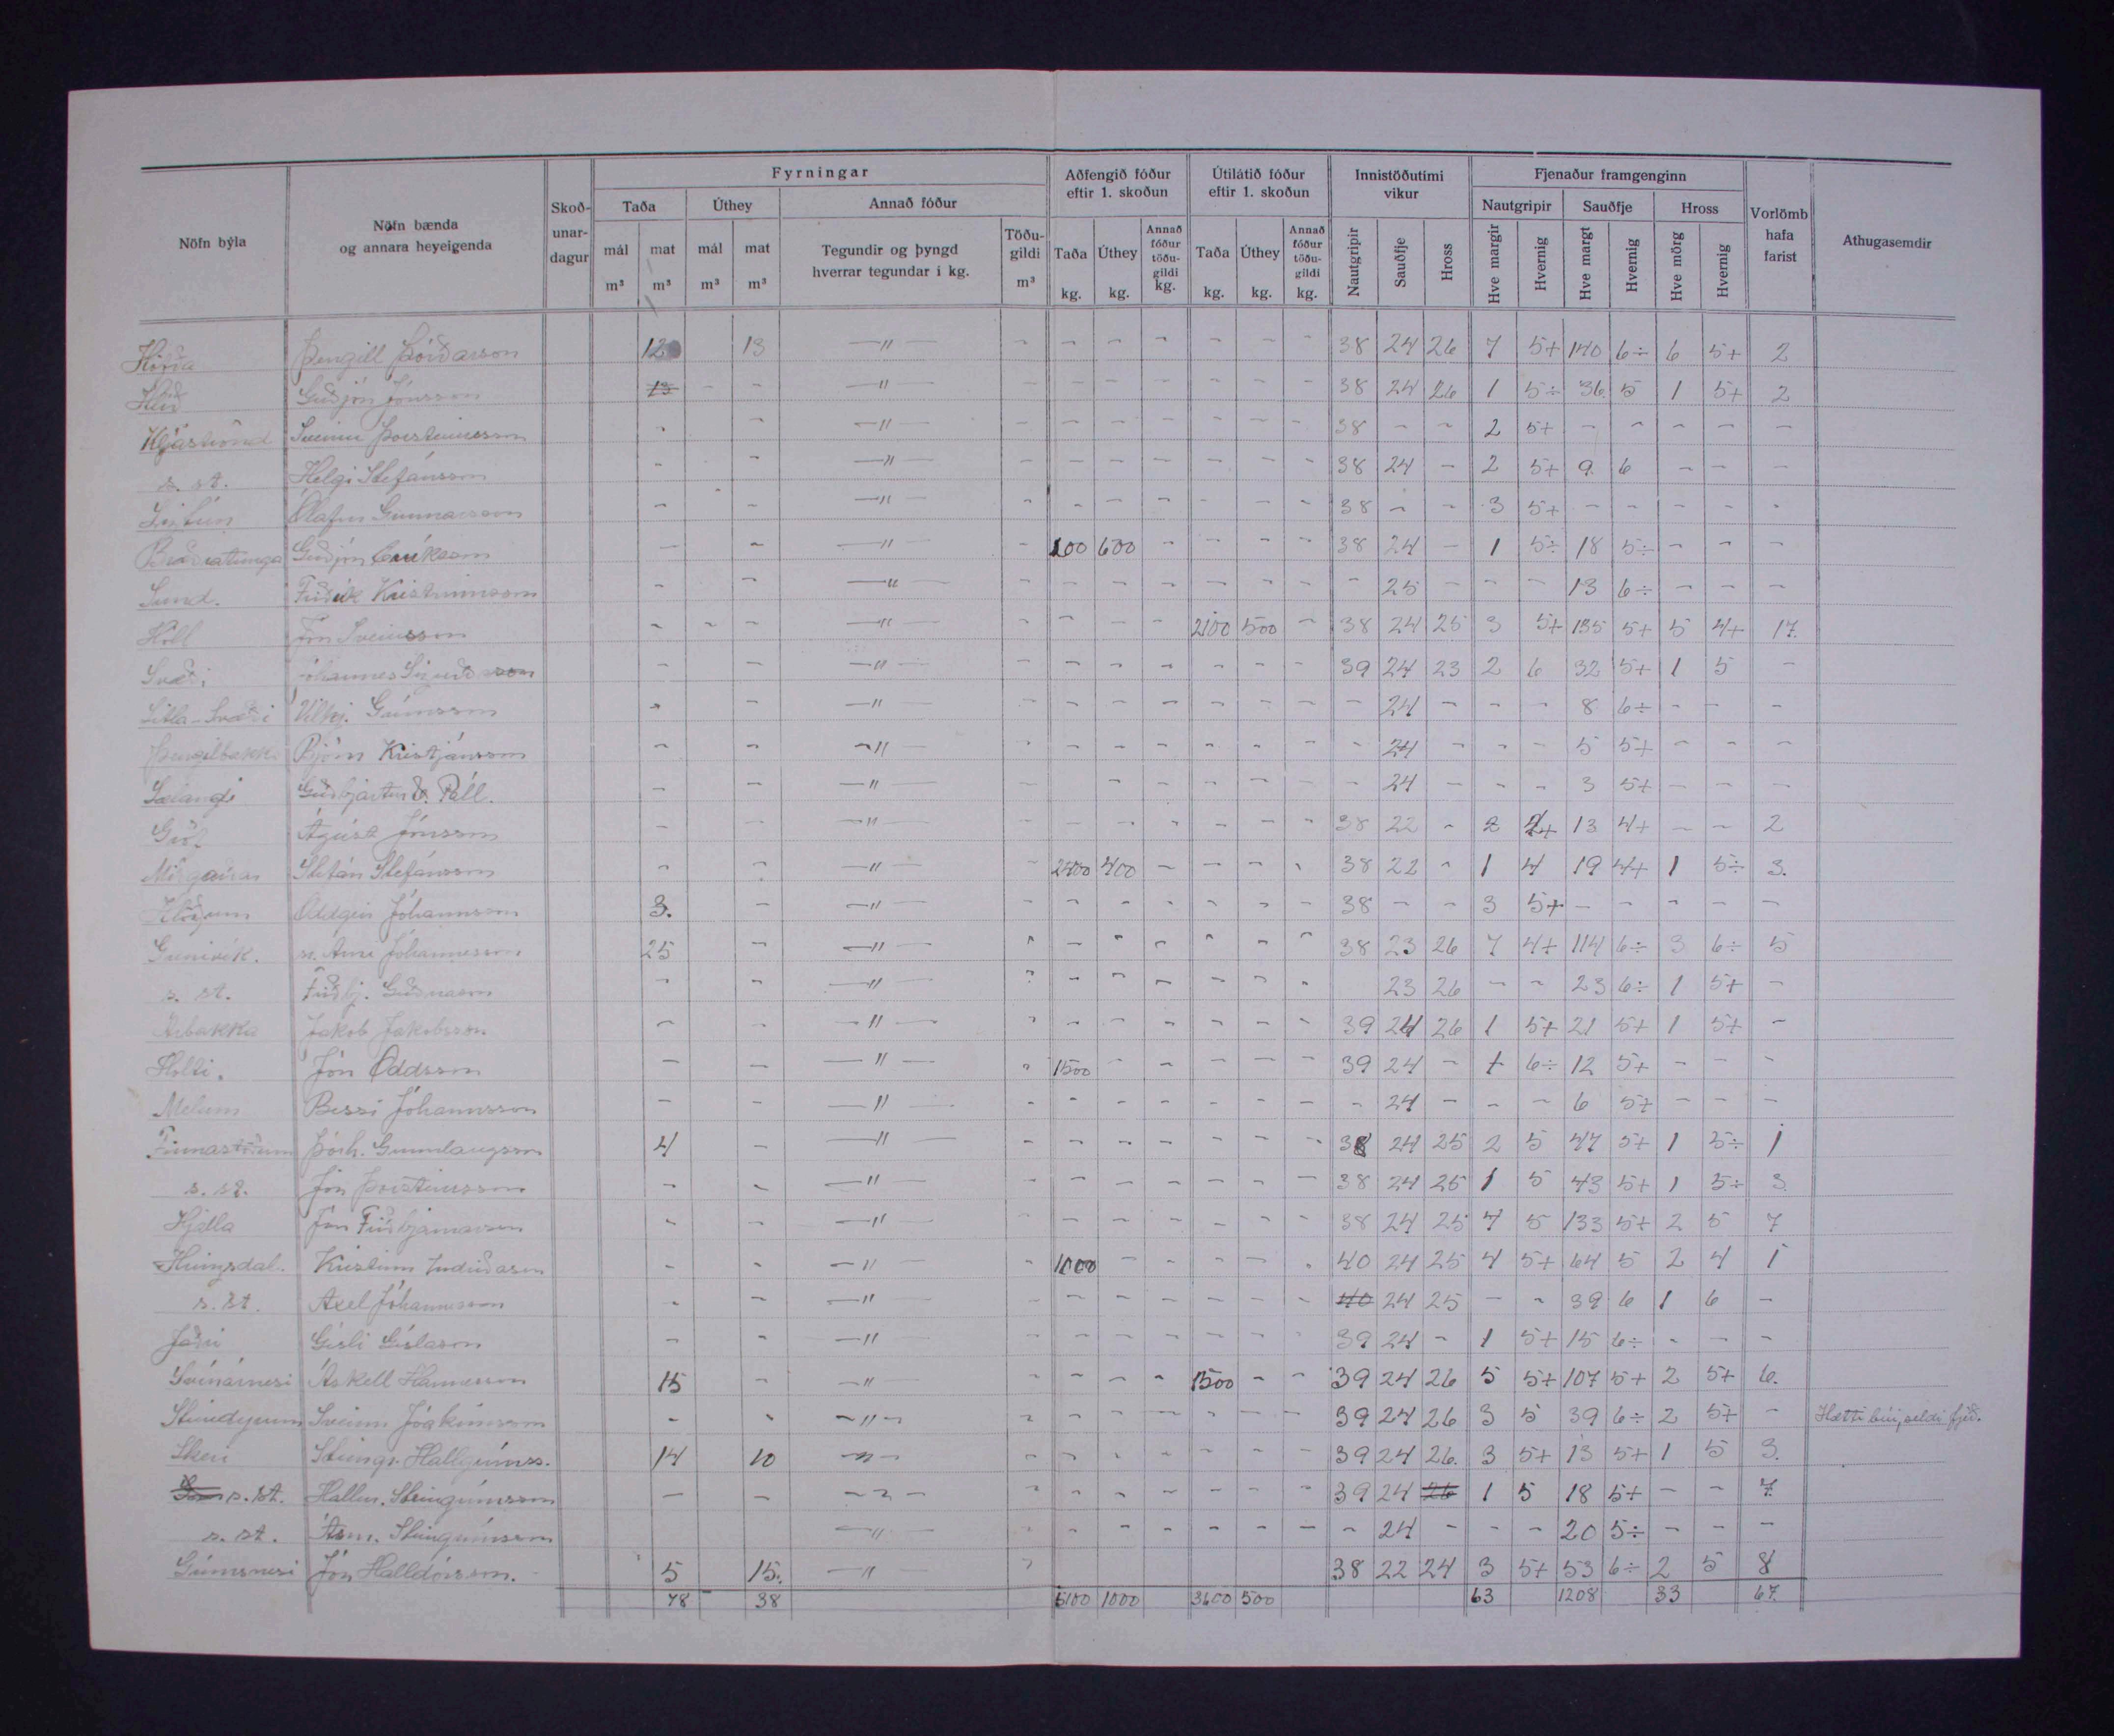 Fyrningar
Aðfengið fóður eftir 1. skoðun
Útilátið fóður eftir 1. skoðun
Innistöðutími vikur
Fjenaður framgenginn
Nöfn býla
Nöfn bænda og annara heyeigenda
Skoð-unar-dagur
Taða Úthey Annað fóður
Nautgripir Sauðfje Hross
Vorlömb hafa farist
Athugasemdir
mál m³ mat m³ mál m³ mat m³ Tegundir og þyngd hverrar tegundar í kg. Töðu-gildi m³
Taða kg. Úthey kg. Annað fóður töðu-gildi kg. Taða kg. Úthey kg. Annað fóður töðu-gildi kg.
Nautgripir Sauðfje Hross Hve margir Hvernig Hve margt Hvernig Hve mörg Hvernig
Þengill Þórðarson 12 13 —"— - - - - - - - 38 24 26 7 5+ 140 6÷ 6 5+ 2
Guðjón Jónsson 13 - - —"— - - - - - - - 38 24 26 1 5÷ 36 5 1 5+ 2
Sveinn Þorsteinsson - - —"— - - - - - - - 38 - - 2 5+ - - - - -
s. st. Helgi Stefánsson - - —"— - - - - - - - 38 24 - 2 5+ 9 6 - - -
Ólafur Gunnarsson - - —"— - - - - - - - 38 - - 3 5+ - - - - -
Brattatunga Guðjón - - —"— - 100 600 - - - - 38 24 - 1 5÷ 18 5÷ - - -
Sund. Friðrik Kristinnsson - - —"— - - - - - - - - 25 - - - 13 6÷ - - -
Höfði Jón Sveinsson - - - —"— - - - - 2100 500 - 38 24 25 3 5+ 135 5+ 5 4+ 17
Svæði Jóhannes - - —"— - - - - - - - 39 24 23 2 6 32 5+ 1 5 -
Litla-Svæði Vilhj. Grímsson - - —"— - - - - - - - - 24 - - - 8 6÷ - - -
Þengilbakki Björn Kristjánsson - - —"— - - - - - - - - 24 - - - 5 5+ - - -
Guðbjartur & Páll. - - —"— - - - - - - - 24 - - - 3 5+ - - -
Gröf Ágúst Jónsson - - —"— - - - - - - - 38 22 - 2 4+ 13 4+ - - 2
Stefán Stefánsson - - —"— - 2400 400 - - - - 38 22 - 1 4 19 4+ 1 5÷ 3.
Oddgeir Jóhannsson 3. - —"— - - - - - - - 38 - - 3 5+ - - - - -
Grenivík. Árni Jóhannesson 25 - —"— - - - - - - - 38 23 26 7 4+ 114 6÷ 3 6÷ 5
s. st. Friðbj. Guðnason - - —"— - - - - - - - 23 26 - - 23 6÷ 1 5+ -
Árbakka Jakob Jakobsson - - —"— - - - - - - - 39 24 26 1 5+ 21 5+ 1 5+ -
Holti. Jón Oddsson - - —"— - 1500 - - - - - 39 24 - 1 6÷ 12 5+ - - -
Melum Bessi Jóhannsson - - —"— - - - - - - - - 24 - - - 6 5+ - - -
Finnastöðum Þórh. Gunnlaugsson 4 - —"— - - - - - - - 38 24 25 2 5 47 5+ 1 5÷ 1
s. st. Jón Þorsteinsson - - —"— - - - - - - - 38 24 25 1 5 43 5+ 1 5÷ 3
Hjalla Jón Friðbjarnarson - - —"— - - - - - - - 38 24 25 4 5 133 5+ 2 5 7
Hringsdal. Kristinn Indriðason - - —"— - 1000 - - - - - 40 24 25 4 5+ 64 5 2 4 1
s. st. Axel Jóhannesson - - —"— - - - - - - - 40 24 25 - - 39 6 1 6 -
Jaðri Gísli Gíslason - - —"— - - - - - - - 39 24 - 1 5+ 15 6÷ - - -
Svínárnesi Áskell Hannesson 15 - —"— - - - - 1500 - - 39 24 26 5 5+ 107 5+ 2 5+ 6.
Steindyrum Sveinn Jóakimsson - - —"— - - - - - - - 39 24 26 3 5 39 6÷ 2 5+ - Hætti búi, seldi fjeð.
Skeri Steingr. Hallgrímss. 14 10 —"— - - - - - - - 39 24 26. 3 5+ 13 5+ 1 5 3.
s. st. Hallur. Steingrímsson - - —"— - - - - - - - 39 24 26 1 5 18 5+ - - 7
s. st. Ásm. Steingrímsson —"— - - - - - - - - 24 - - - 20 5÷ - - -
Grímsnesi Jón Halldórsson. 5 15. —"— - 38 22 24 3 5+ 53 6÷ 2 5 8
78 - 38 5100 1000 3600 500 63 1208 33 67